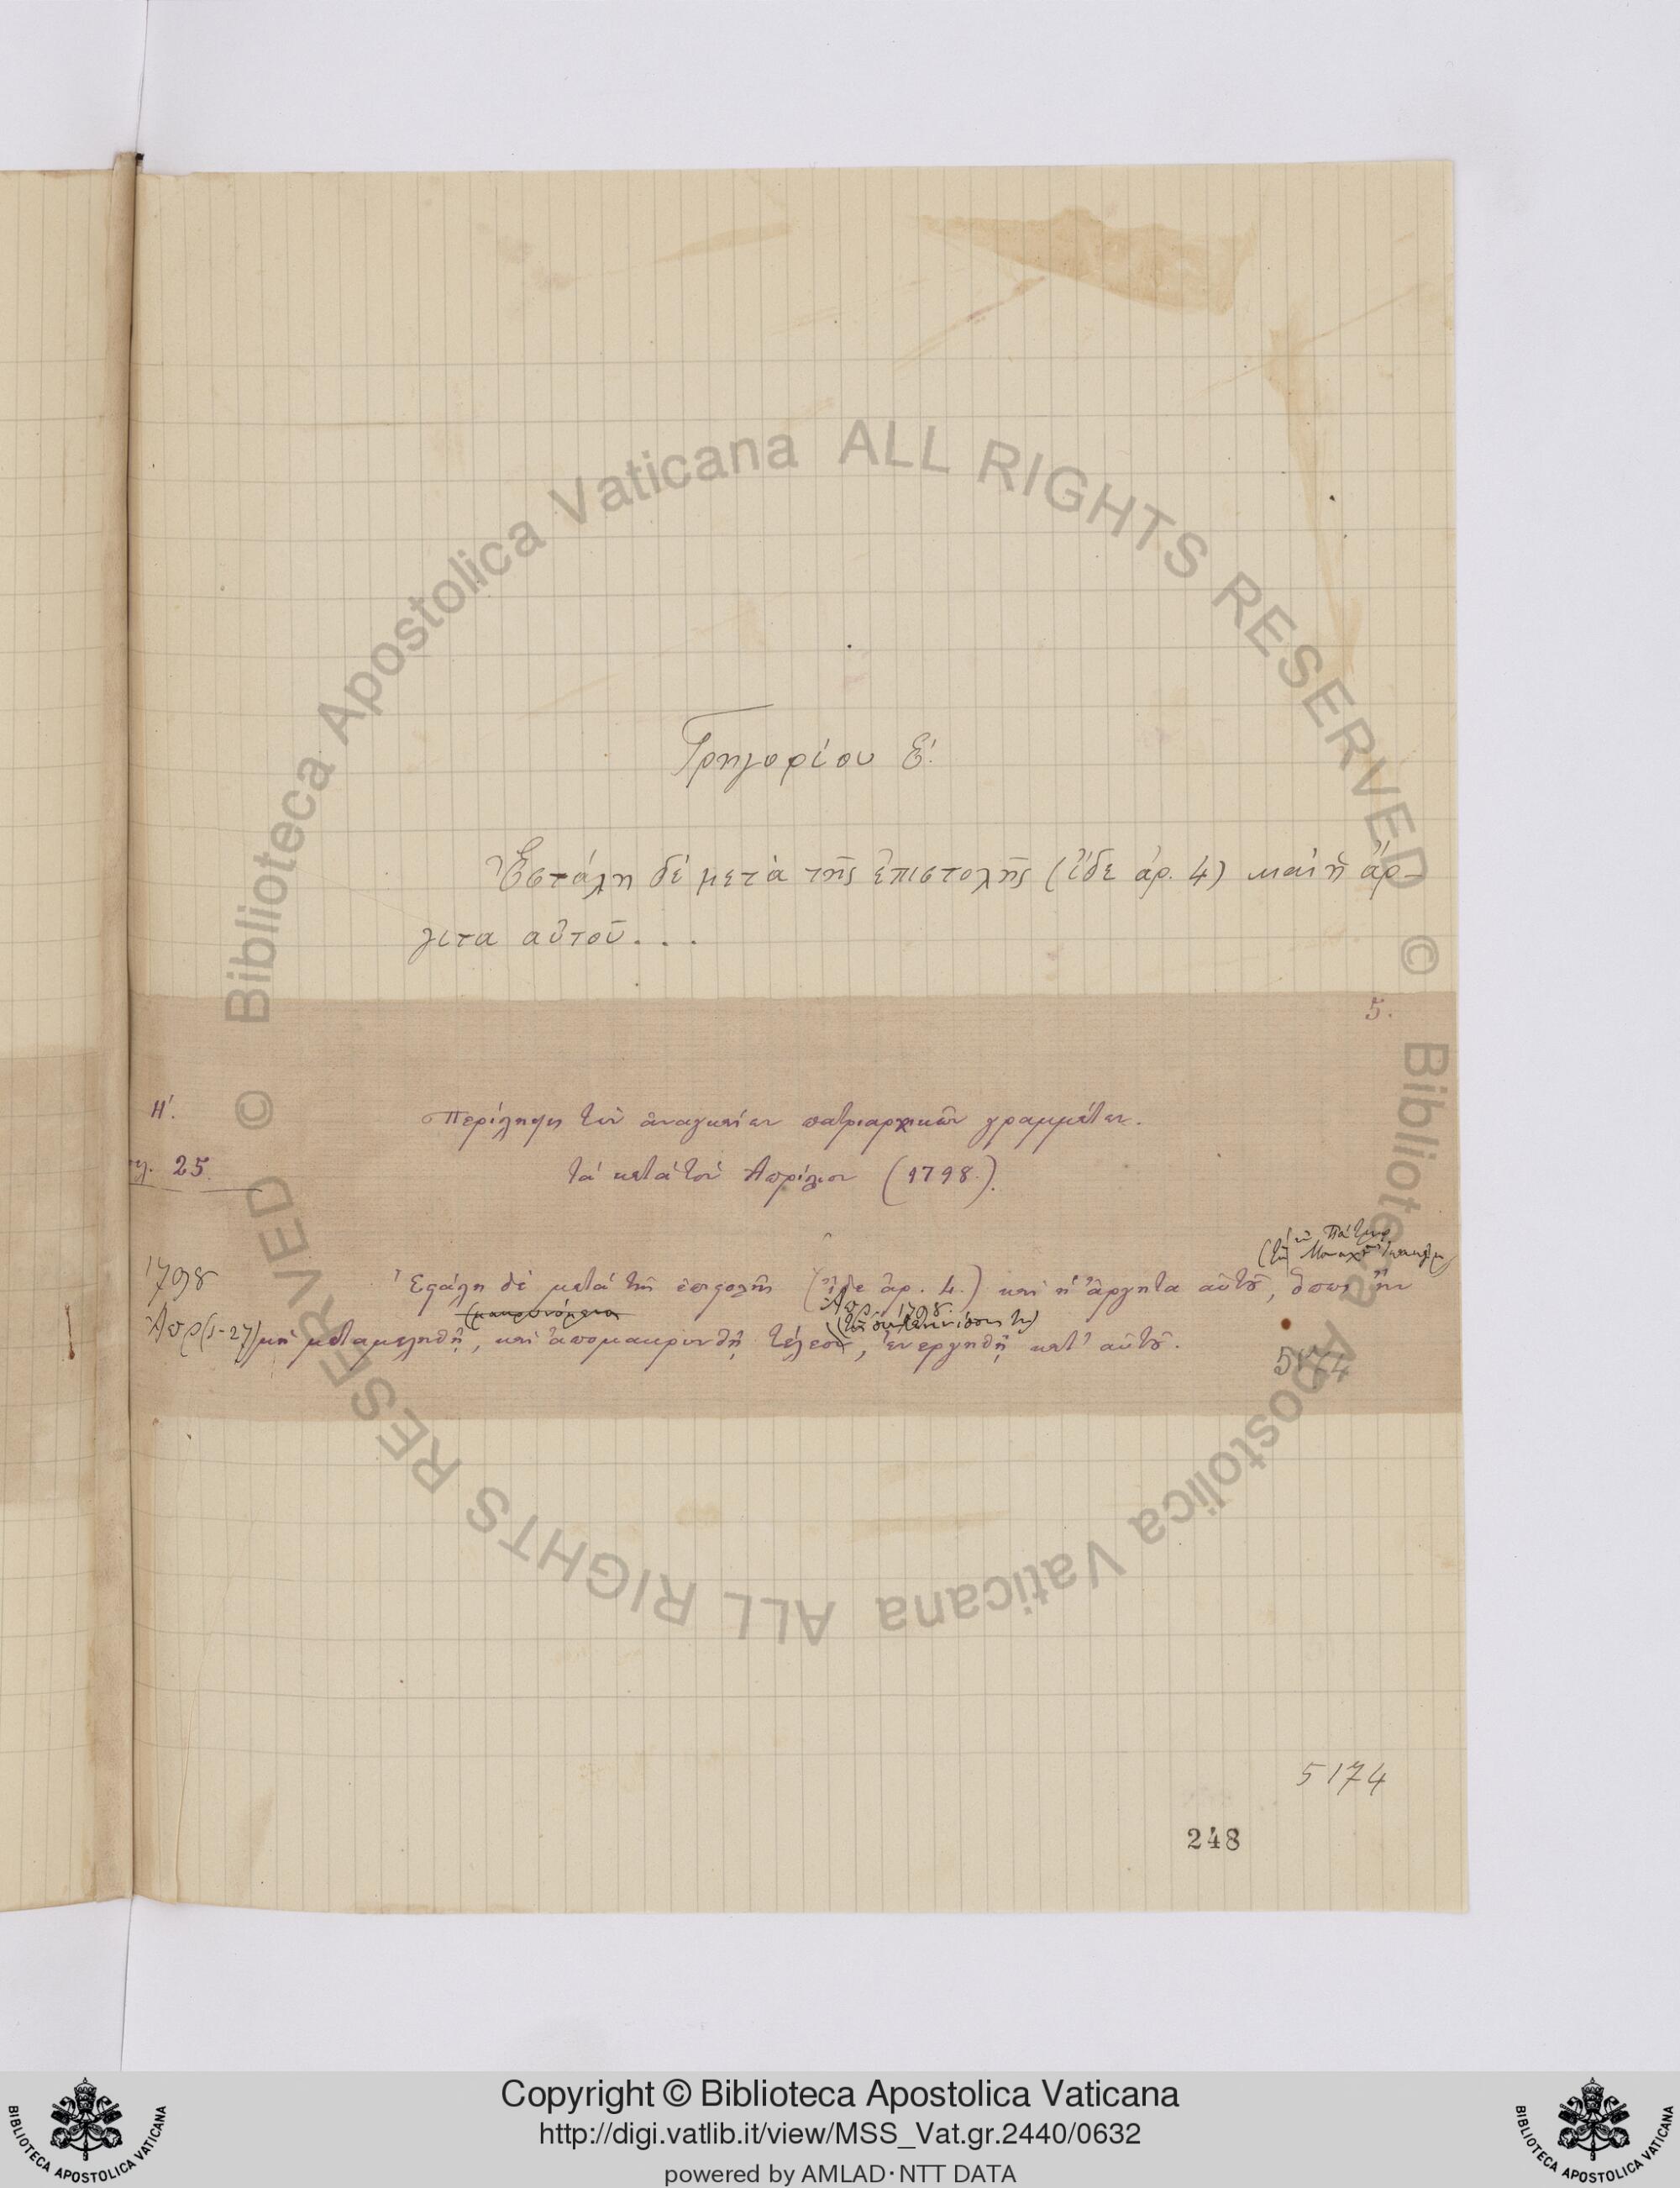 Γρηγορίου Ε΄.
Ἐστάλη δὲ μετὰ τῆς ἐπιστολῆς (ἴδε ἀρ. 4) καὶ ἡ ἀρ-
γιτα αὐτοῦ...
5.
Η΄.
Περίληψις τῶν ἀναγκαίων πατριαρχικῶν γραμμάτων.
25.
τὰ κατὰ τὸν Ἀπρίλιον (1798).
(τοῦ Μοναχοῦ
1798
Ἐστάλη δὲ μετὰ τῆς ἐπιστολῆς (ἴδε ἀρ. 4.) καὶ ἡ ἄργητα αὐτοῦ, ὅπως ἂν
Ἀπρ. 1798.
Ἀπρ (1-27) μὴ μεταμεληθῇ, καὶ ἀπομακρυνθῇ τέλεον, ἐνεργηθῇ κατ' αὐτοῦ.
5174
5174
248
© Biblioteca Apostolica Vaticana ALL RIGHTS RESERVED
© Biblioteca Apostolica Vaticana ALL RIGHTS RESERVED
Copyright © Biblioteca Apostolica Vaticana
http://digi.vatlib.it/view/MSS_Vat.gr.2440/0632
powered by AMLAD·NTT DATA
BIBLIOTECA APOSTOLICA VATICANA
BIBLIOTECA APOSTOLICA VATICANA